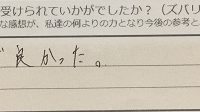 受けられていかがでしたか？（ズバリ
な感想が、私達の何よりの力となり今後の参考と
良かった。